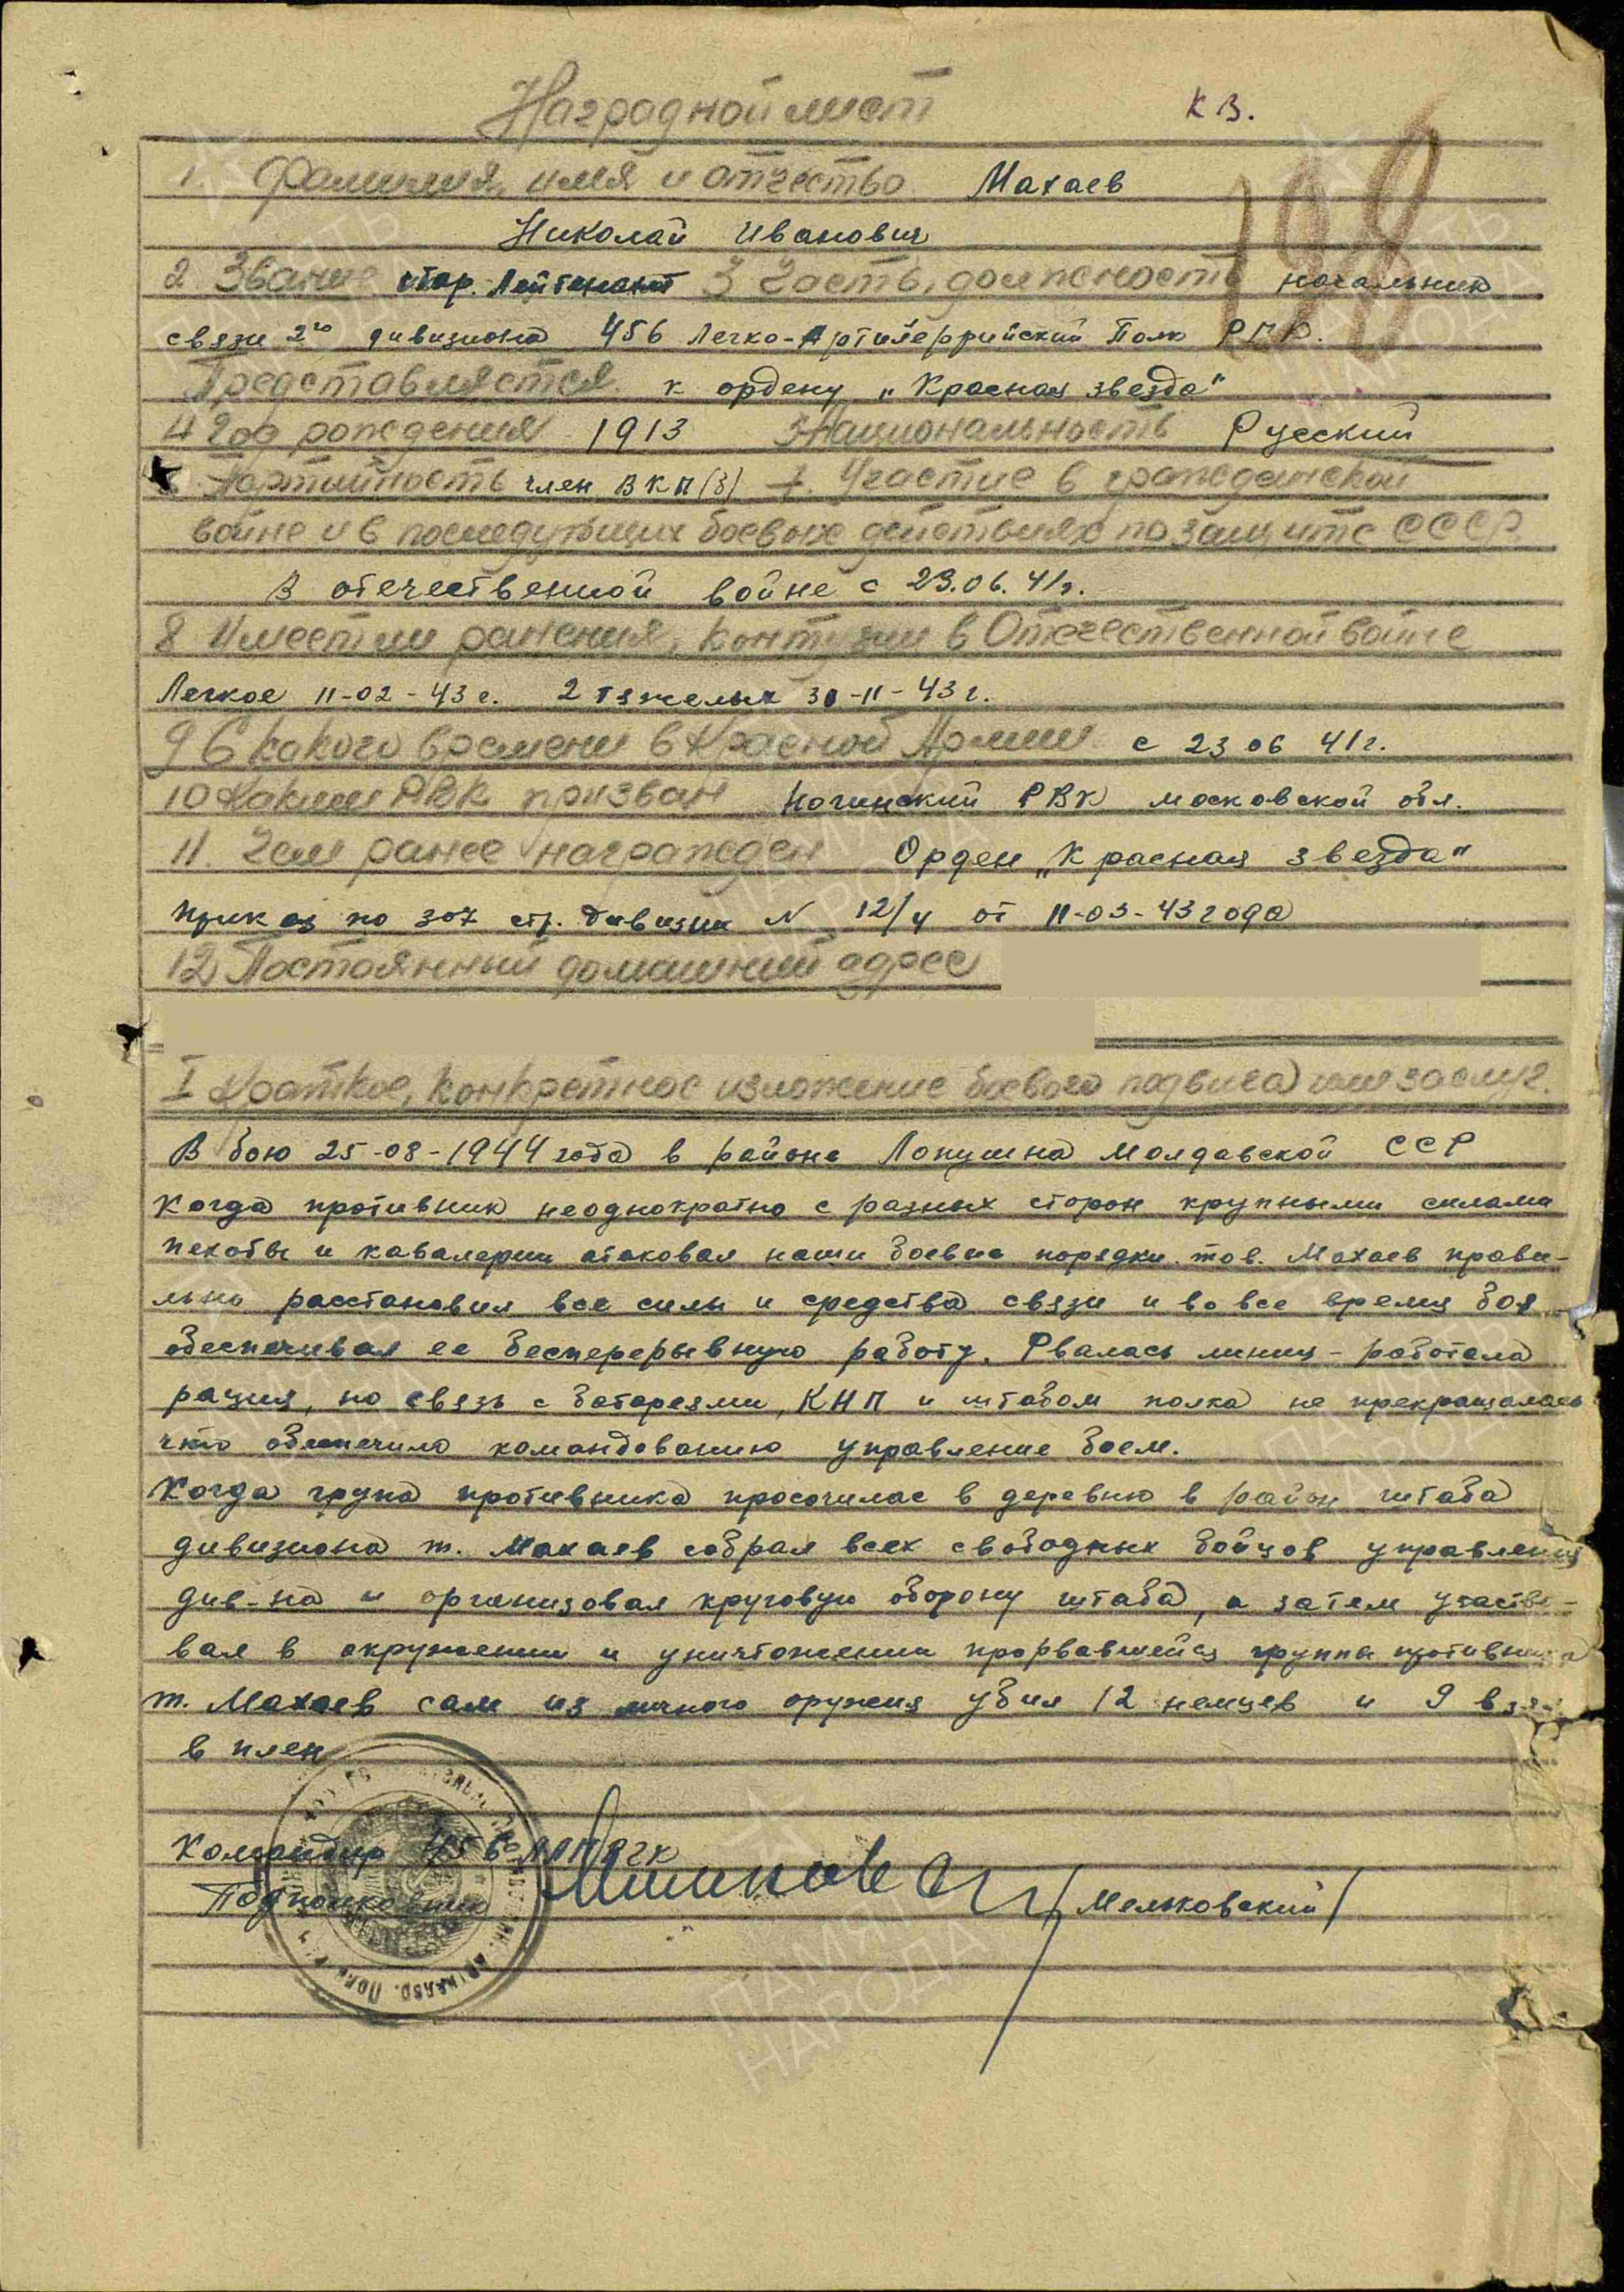 Наградной лист К З.
198
1. Фамилия, имя и отчество Махаев
Николай Иванович
2 Звание стар. Лейтенант 3 Часть, должность начальник
связи 2го дивизиона 456 Легко-Артилеррийский Полк РГК.
Представляется к ордену „Красная звезда"
4 Год рождения 1913 Национальность Русский
Партийность член ВКП(б) 7. Участие в гражданской
войне и в последующих боевых действиях по защите СССР
В отечественной войне с 23.06.41г.
8 Имеет ли ранения, контузии в Отечественной войне
Легкое 11-02-43 г. 2 тяжелых 30-11-43 г.
9 С какого времени в Красной Армии с 23 06 41г.
10 Каким РВК призван Ногинский РВК московской обл.
11. Чем ранее награжден Орден „Красная звезда"
Приказ по 307 стр. дивизии N 12/н от 11-03-43 года
12 Постоянный домашний адрес
I Краткое, конкретное изложение боевого подвига или заслуг.
В бою 25-08-1944 года в районе Лопушна Молдавской ССР
когда противник неоднократно с разных сторон крупными силами
пехоты и кавалерии атаковал наши боевые порядки тов. Махаев прави-
льно расстановил все силы и средства связи и во все время боя
обеспечивал ее бесперерывную работу. Рвалась линия - работала
рация, но связь с батареями, КНП и штабом полка не прекращалась
что обеспечило командованию управление боем.
Когда група противника просочилас в деревню в район штаба
дивизиона т. Махаев собрал всех свободных бойцов управления
див-на и организовал круговую оборону штаба, а затем участво-
вал в окружении и уничтожении прорвавшейся группы противника
т. Махаев сам из личного оружия убил 12 немцев и 9 взял
в плен
Командир 456 ЛАП РГК
Подполковник /Мельковский/
ПАМЯТЬ
НАРОДА